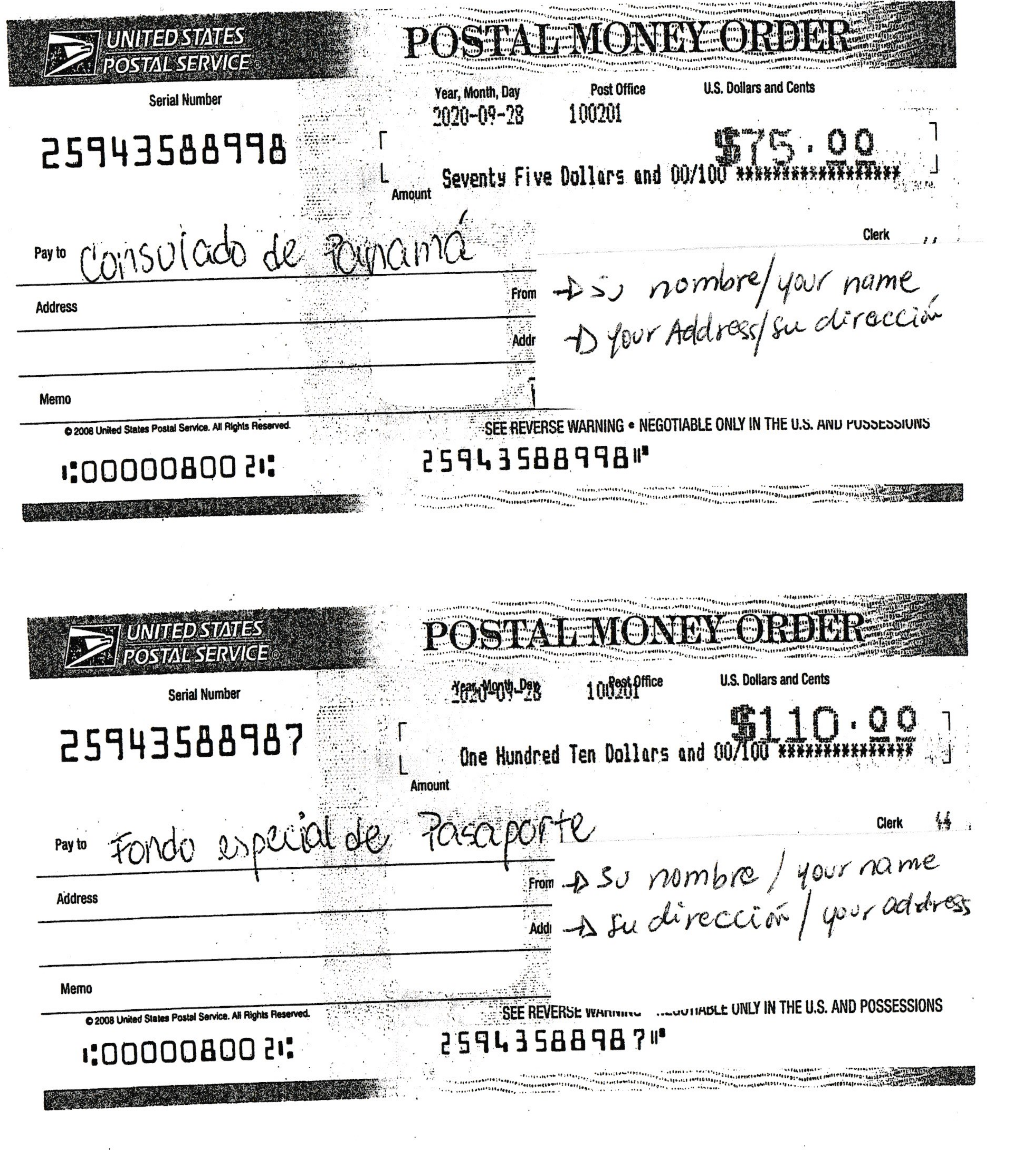 UNITED STATES
POSTAL SERVICE ®
POSTAL MONEY ORDER
Serial Number
Year, Month, Day Post Office U.S. Dollars and Cents
2020-09-28 100201
25943588998
$75.00
Seventy Five Dollars and 00/100 *******************
Amount
Pay to Consulado de Panamá
Clerk
Address
From → Su nombre/your name
Addr → Your Address/su dirección
Memo
© 2008 United States Postal Service. All Rights Reserved.
SEE REVERSE WARNING • NEGOTIABLE ONLY IN THE U.S. AND POSSESSIONS
⑆00000800 2⑆ 25943588998⑈
UNITED STATES
POSTAL SERVICE ®
POSTAL MONEY ORDER
Serial Number
Year, Month, Day Post Office U.S. Dollars and Cents
2020-09-28 100201
25943588987
$110.00
One Hundred Ten Dollars and 00/100 ****************
Amount
Pay to Fondo especial de Pasaporte
Clerk
Address
From → Su nombre / your name
Addr → Su dirección / your address
Memo
© 2008 United States Postal Service. All Rights Reserved.
SEE REVERSE WARNING NEGOTIABLE ONLY IN THE U.S. AND POSSESSIONS
⑆00000800 2⑆ 25943588987⑈